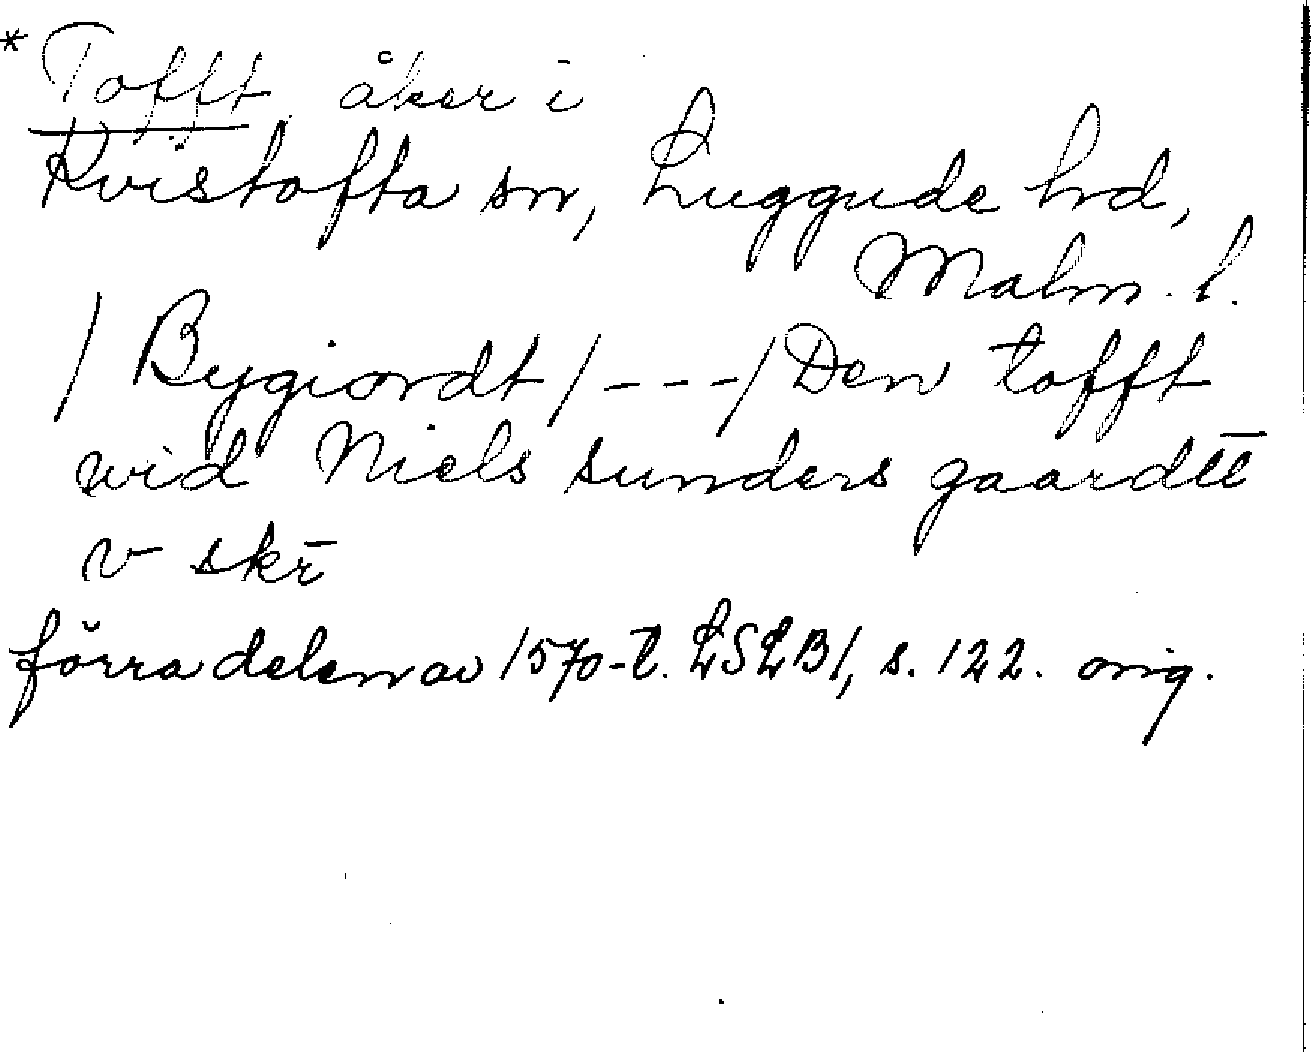 * Tofft åker i
Kvistofta sn, Luggude hd,
Malm. l.
/ Bygiordt / - - - / Den tofft
wid Niels sunders gaardtt
v skr̄
förra delen av 1570-t. LSLB1, s. 122. orig.